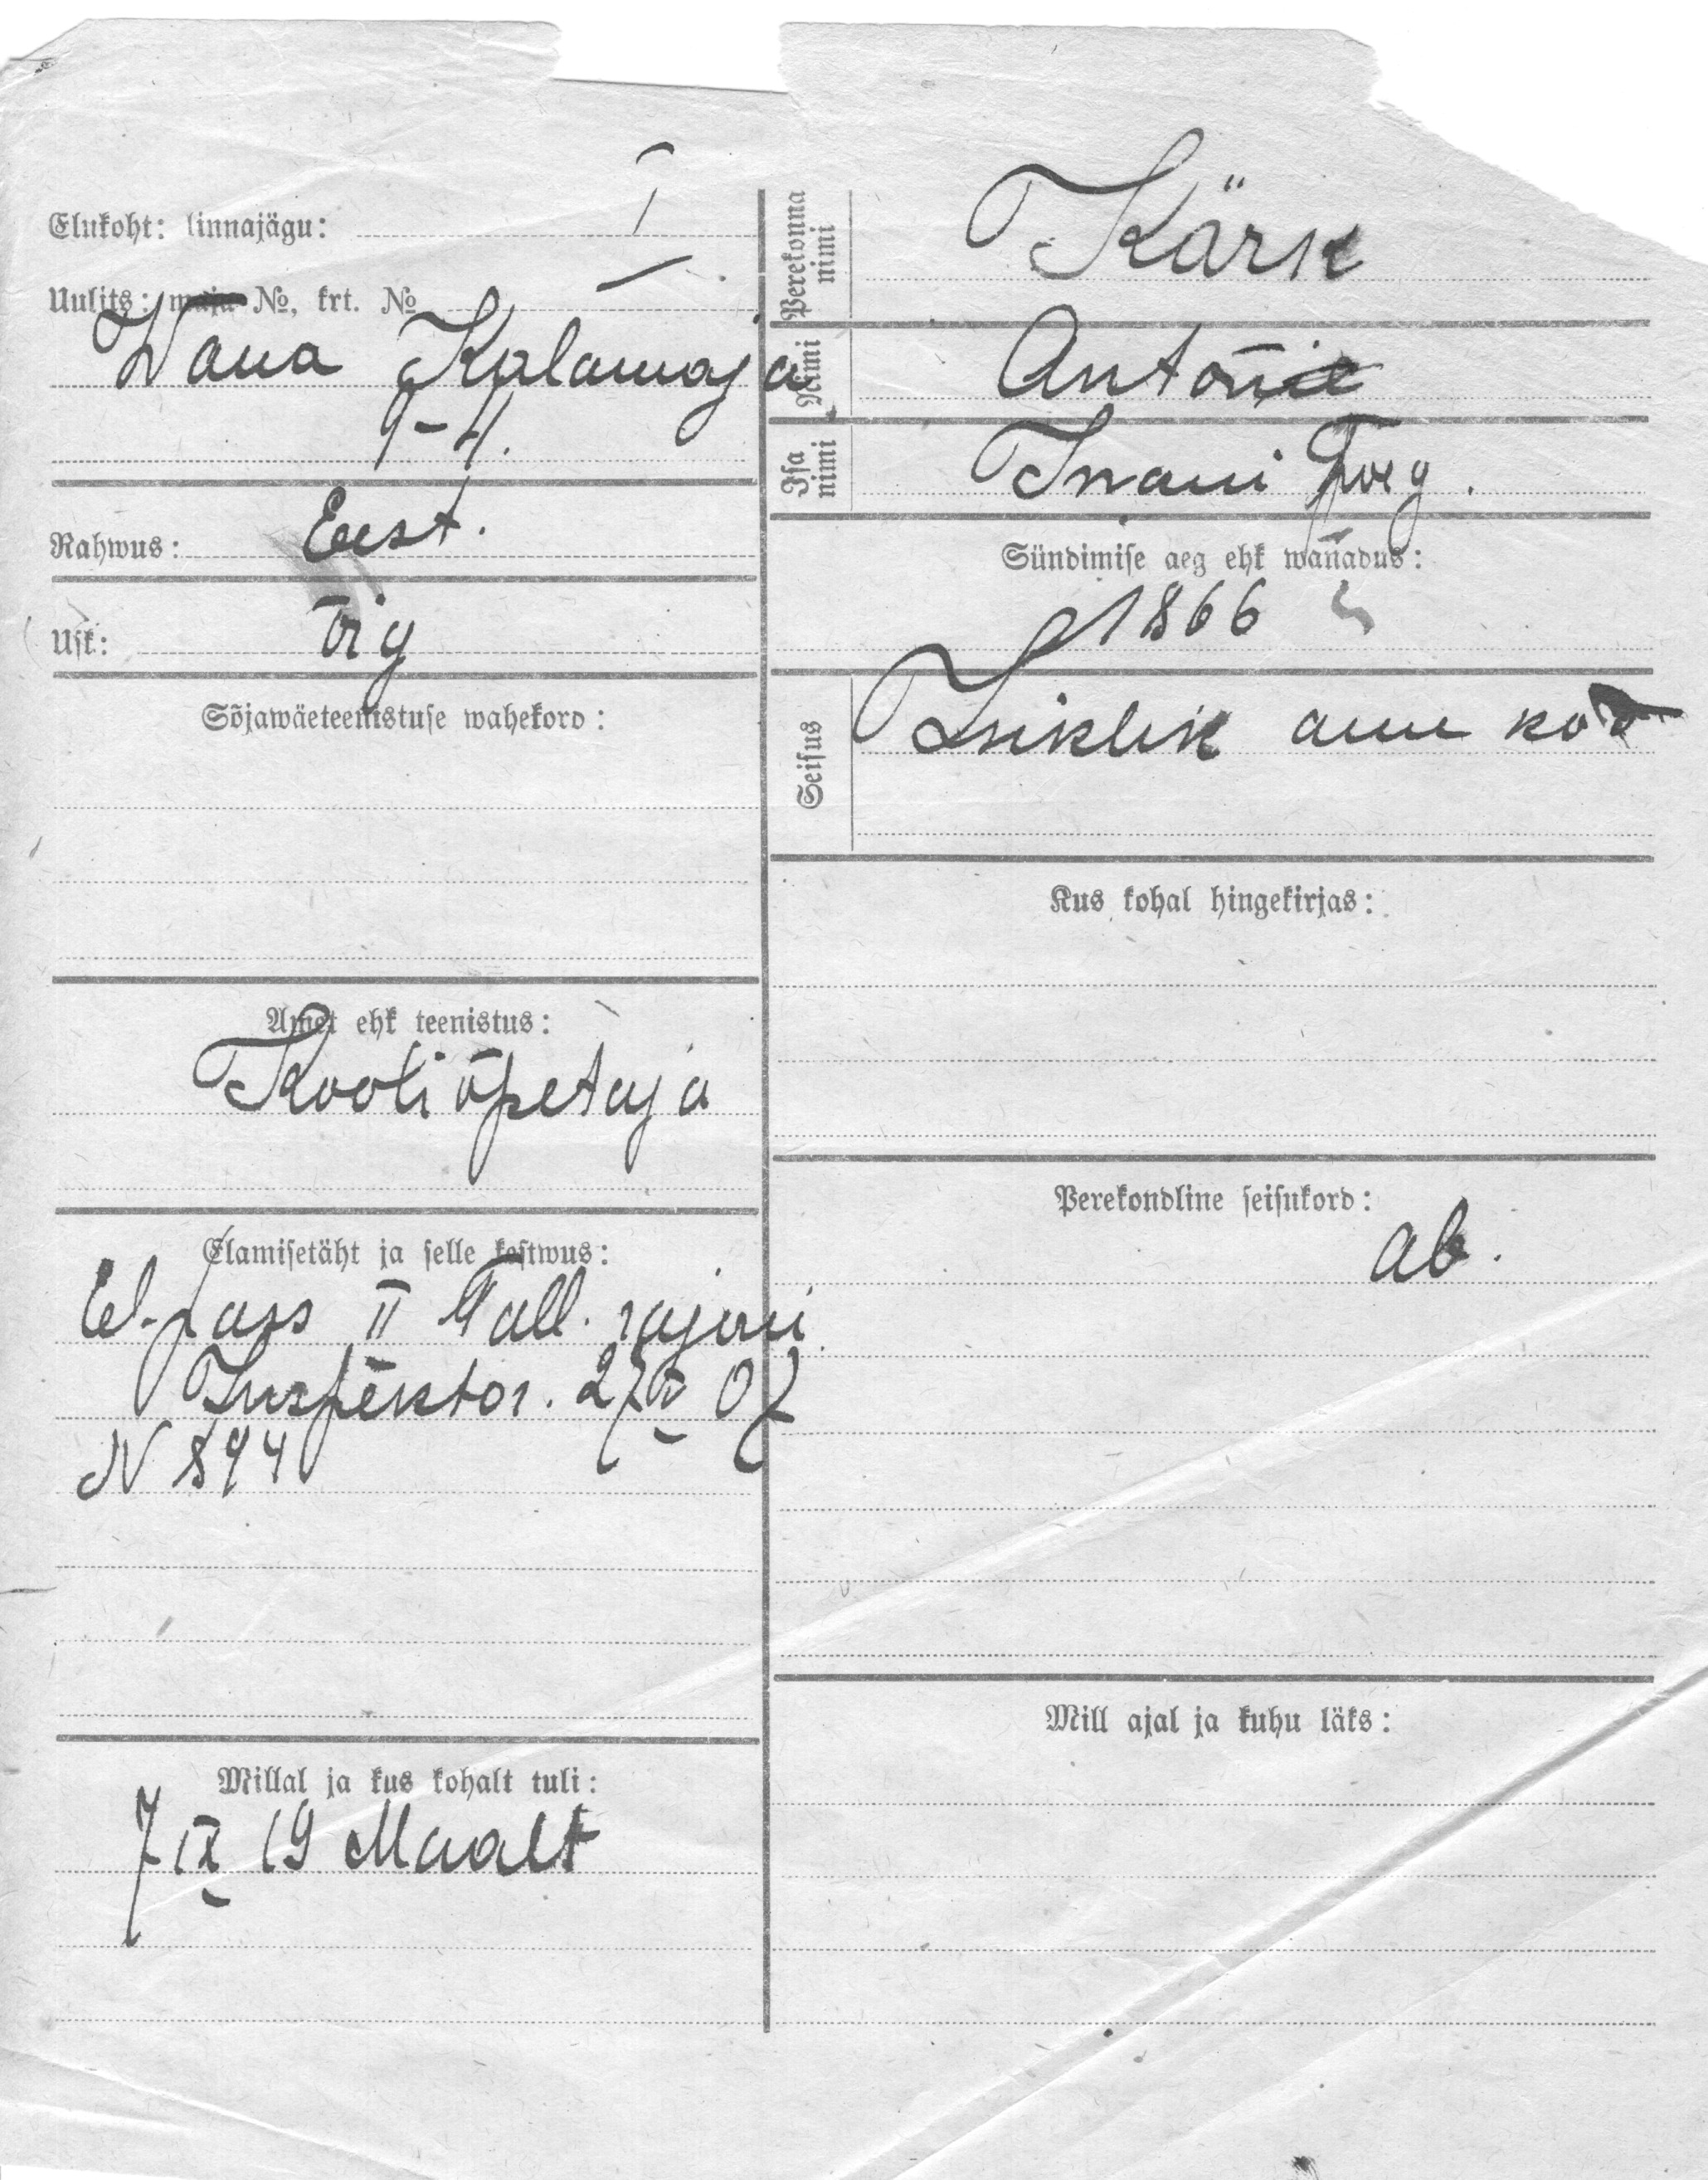 Elukoht: linnajägu: I
Uulits: maja №, krt. №
Wana Kalamaja
9-4.
Rahwus: Eest.
Usk: õig
Sõjawäeteenistuse wahekord:
Amet ehk teenistus:
Kooliõpetaja
Elamisetäht ja selle kestwus:
El-pass II Tall. rajoni
Inspektor. 27 IV 07
N 894
Millal ja kus kohalt tuli:
7 IX 19 Maalt
Perekonna nimi Kärk
Nimi Anton
Isa nimi Iwani poeg.
Sündimise aeg ehk wanadus:
1866
Seisus Isiklik auu kod
Kus kohal hingekirjas:
Perekondline seisukord:
ab.
Mill ajal ja kuhu läks: